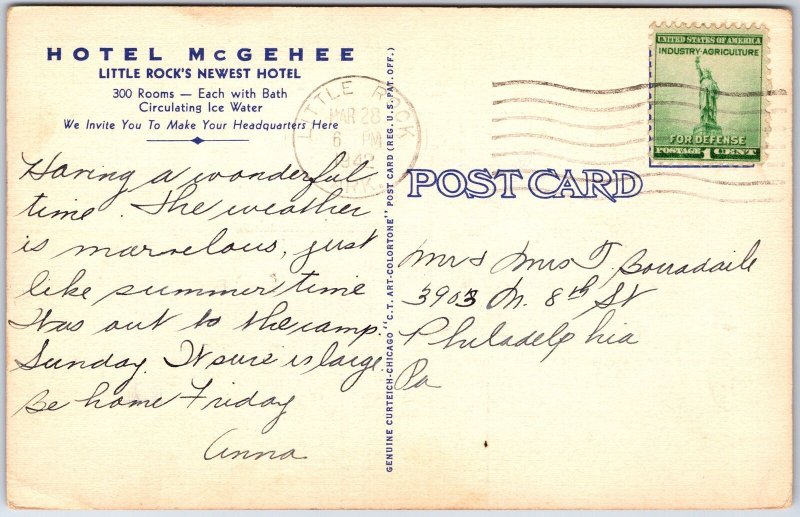 HOTEL McGEHEE
LITTLE ROCK'S NEWEST HOTEL
300 Rooms — Each with Bath
Circulating Ice Water
We Invite You To Make Your Headquarters Here
Having a wonderful
time. The weather
is marvelous, just
like summer time
Was out to the camp
Sunday. It sure is large
Be home Friday
Anna
GENUINE CURTEICH-CHICAGO "C.T. ART-COLORTONE" POST CARD (REG. U.S. PAT. OFF.)
LITTLE ROCK
MAR 28
6 PM
ARK.
UNITED STATES OF AMERICA
INDUSTRY-AGRICULTURE
FOR DEFENSE
POSTAGE 1 CENT
POST CARD
Mr & Mrs T. Borradaile
3903 N. 8th St
Philadelphia
Pa